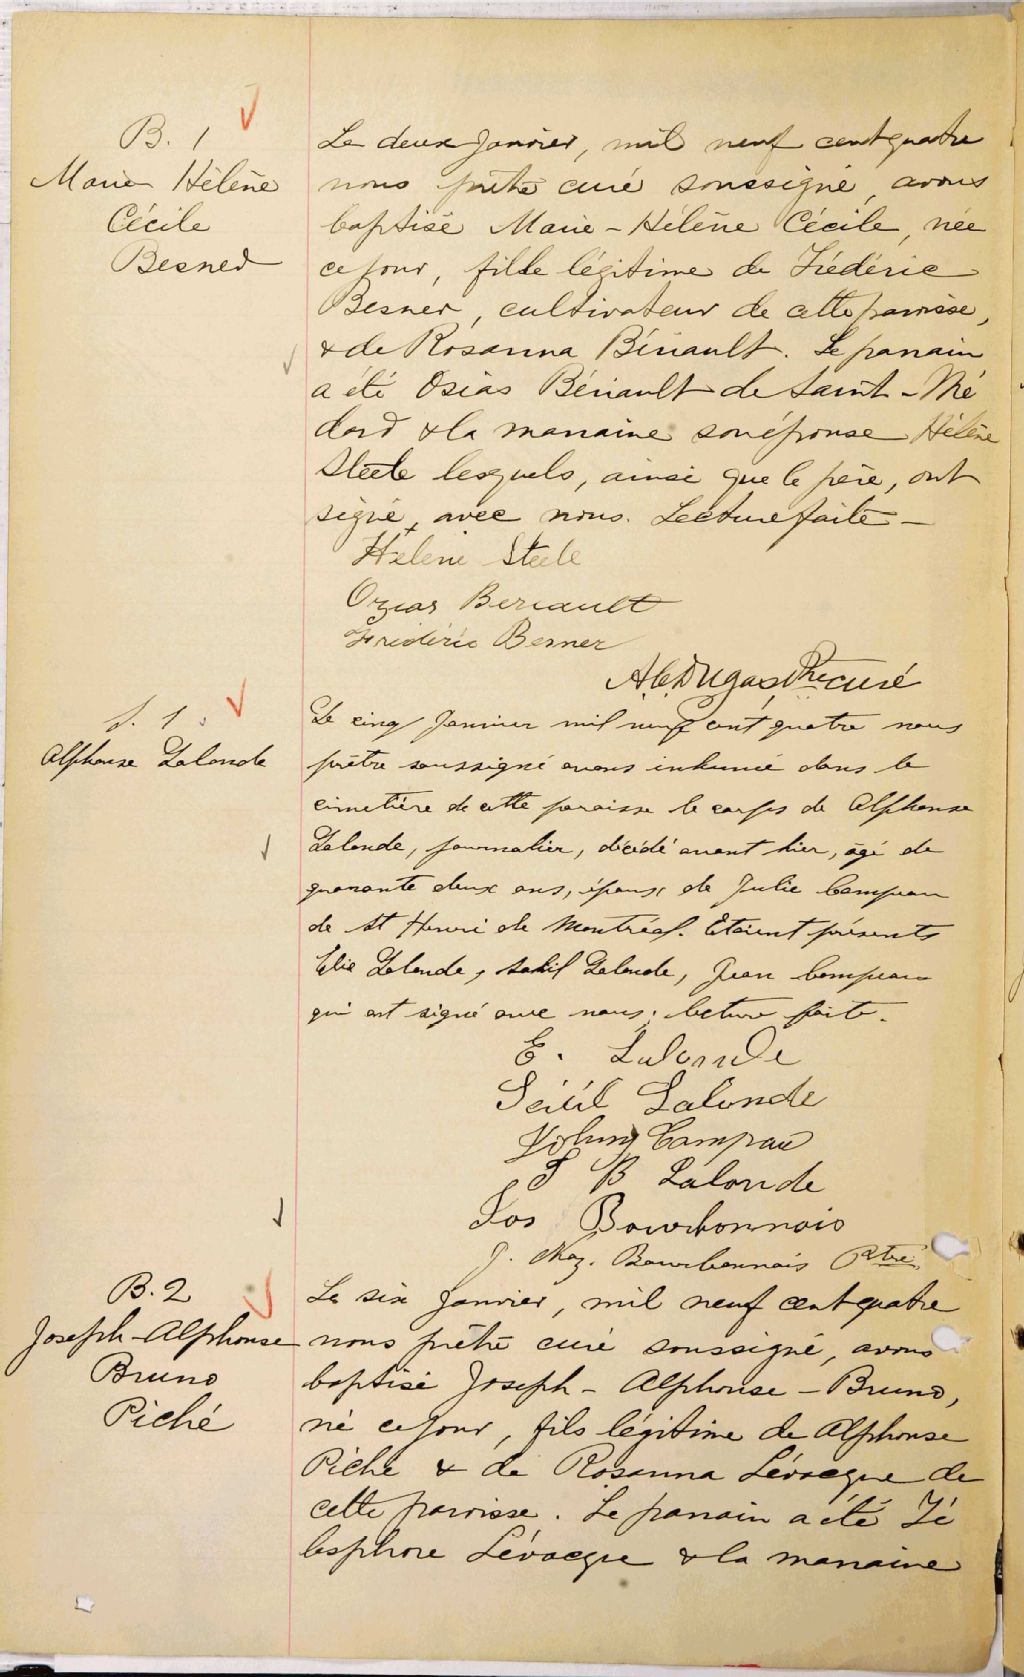 B. 1
Marie Hélène
Cécile
Besner
Le deux Janvier, mil neuf cent quatre
nous prêtre curé soussigné, avons
baptisé Marie-Hélène Cécile, née
ce jour, fille légitime de Frédéric
Besner, cultivateur de cette paroisse,
& de Rosanna Bériault. Le parrain
a été Osias Bériault de Saint-Mé
dard & la marraine son épouse Hélène
Steele lesquels, ainsi que le père, ont
signé, avec nous. Lecture faite -
Hélène Steele
Ozias Beriault
Frédéric Besner
Ptre curé
S. 1.
Alphonse Lalonde
Le cinq Janvier mil neuf cent quatre nous
prêtre soussigné avons inhumé dans le
cimetière de cette paroisse le corps de Alphonse
Lalonde, journalier, décédé avant hier, âgé de
quarante deux ans, époux de Julie Campeau
de St Henri de Montréal. Etaient présents
Elie Lalonde, Lalonde, Jean Campeau
qui ont signé avec nous; lecture faite.
E. Lalonde
Lalonde
Campeau
B Lalonde
Jos Bourbonnais
J. Bourbonnais Ptre
B. 2
Joseph-Alphonse
Bruno
Piché
Le six Janvier, mil neuf cent quatre
nous prêtre curé soussigné, avons
baptisé Joseph-Alphonse-Bruno,
né ce jour, fils légitime de Alphonse
Piché & de Rosanna Lévacque de
cette paroisse. Le parrain a été Té
lesphore Lévacque & la marraine